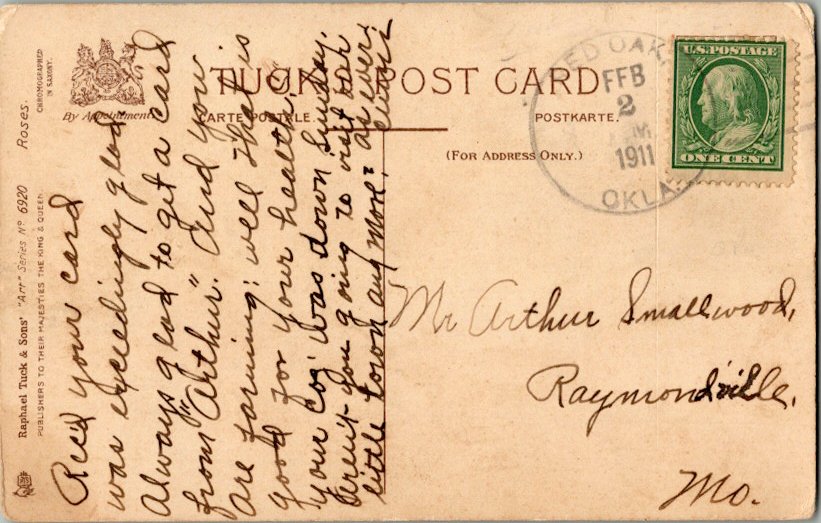 TUCK POST CARD
By Appointment
CARTE POSTALE.
POSTKARTE.
(FOR ADDRESS ONLY.)
Raphael Tuck & Sons' "Art" Series Nº 6920 Roses.
PUBLISHERS TO THEIR MAJESTIES THE KING & QUEEN.
CHROMOGRAPHED
IN SAXONY.
RED OAK
FEB
2
M
1911
OKLA.
U.S. POSTAGE
ONE CENT
Rec'd your card
was exceedingly glad
always glad to get a card
from "Arthur". And you
are farming; well that is
good for your health.
your coz was down Sunday.
Aren't you going to visit our
little town any more?
as ever
Mr Arthur Smallwood,
Raymondville.
Mo.